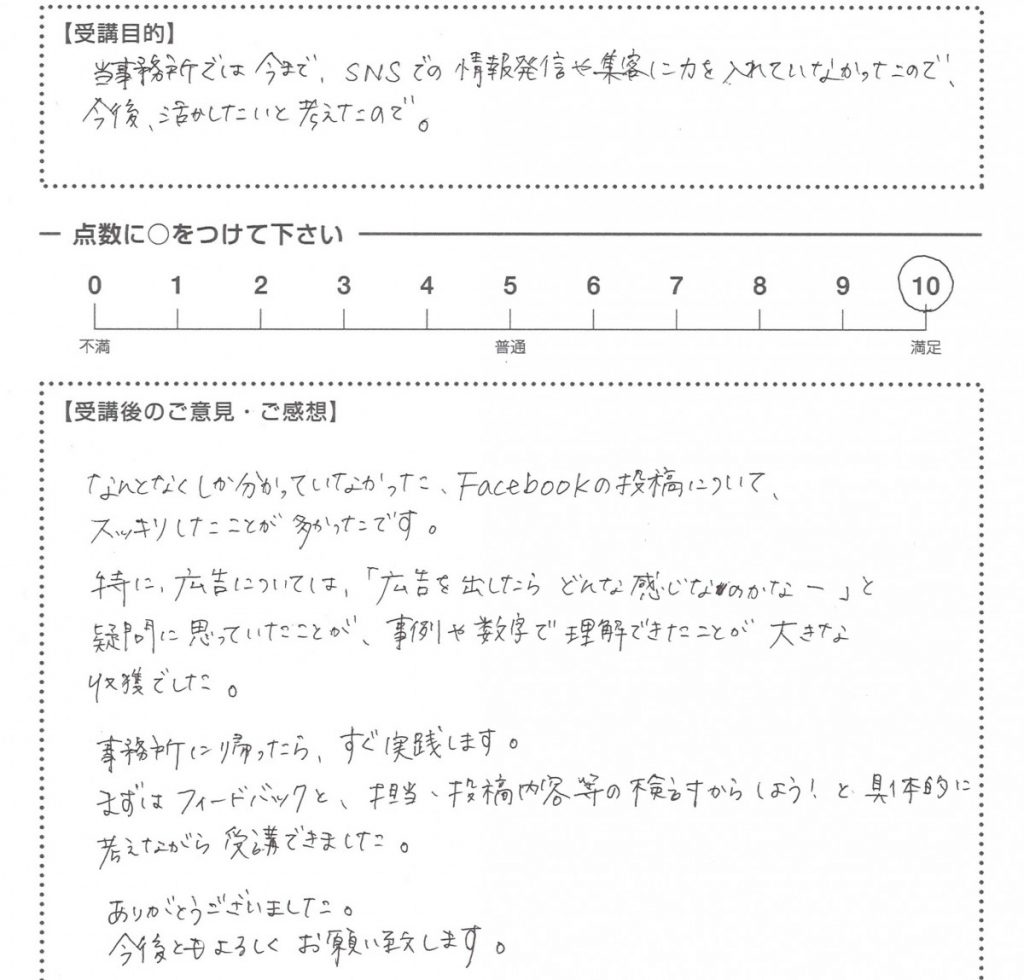 【受講目的】
当事務所では今まで、SNSでの情報発信や集客に力を入れていなかったので、
今後、活かしたいと考えたので。
点数に○をつけて下さい
0 1 2 3 4 5 6 7 8 9 10
不満 普通 満足
【受講後のご意見・ご感想】
なんとなくしか分かっていなかった、Facebookの投稿について、
スッキリしたことが多かったです。
特に、広告については、「広告を出したらどんな感じなのかなー」と
疑問に思っていたことが、事例や数字で理解できたことが大きな
収獲でした。
事務所に帰ったら、すぐ実践します。
まずはフィードバックと、担当、投稿内容等の検討からしよう!と具体的に
考えながら受講できました。
ありがとうございました。
今後ともよろしくお願い致します。